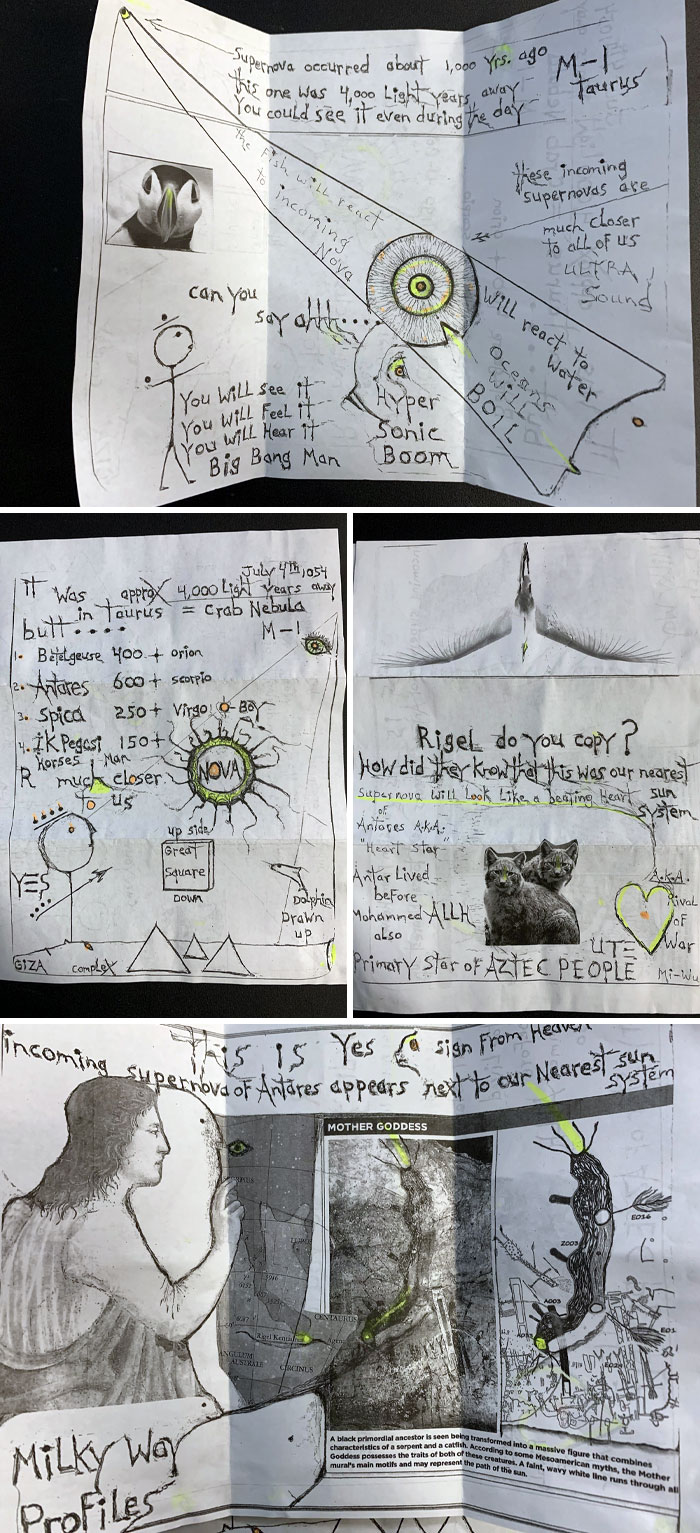 Supernova occurred about 1,000 Yrs. ago
this one was 4,000 Light Years, away
You could see it even during the day
M-1
Taurus
the Fish will react
to incoming
Nova
these incoming
supernovas are
much closer
to all of us
ULTRA
Sound
can you
say ahh....
Will react to
Water
Oceans
Will
BOIL
You Will see it
You Will Feel it
You Will Hear it
Big Bang Man
Hyper
Sonic
Boom
July 4th, 1,054
it was approx 4,000 Light Years away
in Taurus = Crab Nebula
butt....
M-1
1. Betelgeuse 400+ orion
2. Antares 600+ scorpio
3. Spica 250+ Virgo Boy
4. IK Pegasi 150+
Horses Man
R much closer
to us
NOVA
up side
Great
Square
DOWN
YES
Dolphin
Drawn
up
GIZA complex
Rigel do you copy?
How did they know that this was our nearest
sun
system
Supernova will Look Like a beating Heart
of
Antares A.K.A.
"Heart Star"
Antar Lived
before
Mohammed ALLH
also
A.K.A.
Rival
of
War
UTE
Mi-Wu
Primary Star of AZTEC PEOPLE
This is Yes sign From Heaven
incoming supernova of Antares appears next to our Nearest sun
system
MOTHER GODDESS
CENTAURUS
Rigel Kentaurus
AUSTRALE
CIRCINUS
E016
Z003
A003
E01
Milky Way
Profiles
A black primordial ancestor is seen being transformed into a massive figure that combines
characteristics of a serpent and a catfish. According to some Mesoamerican myths, the Mother
Goddess possesses the traits of both of these creatures. A faint, wavy white line runs through all
mural's main motifs and may represent the path of the sun.